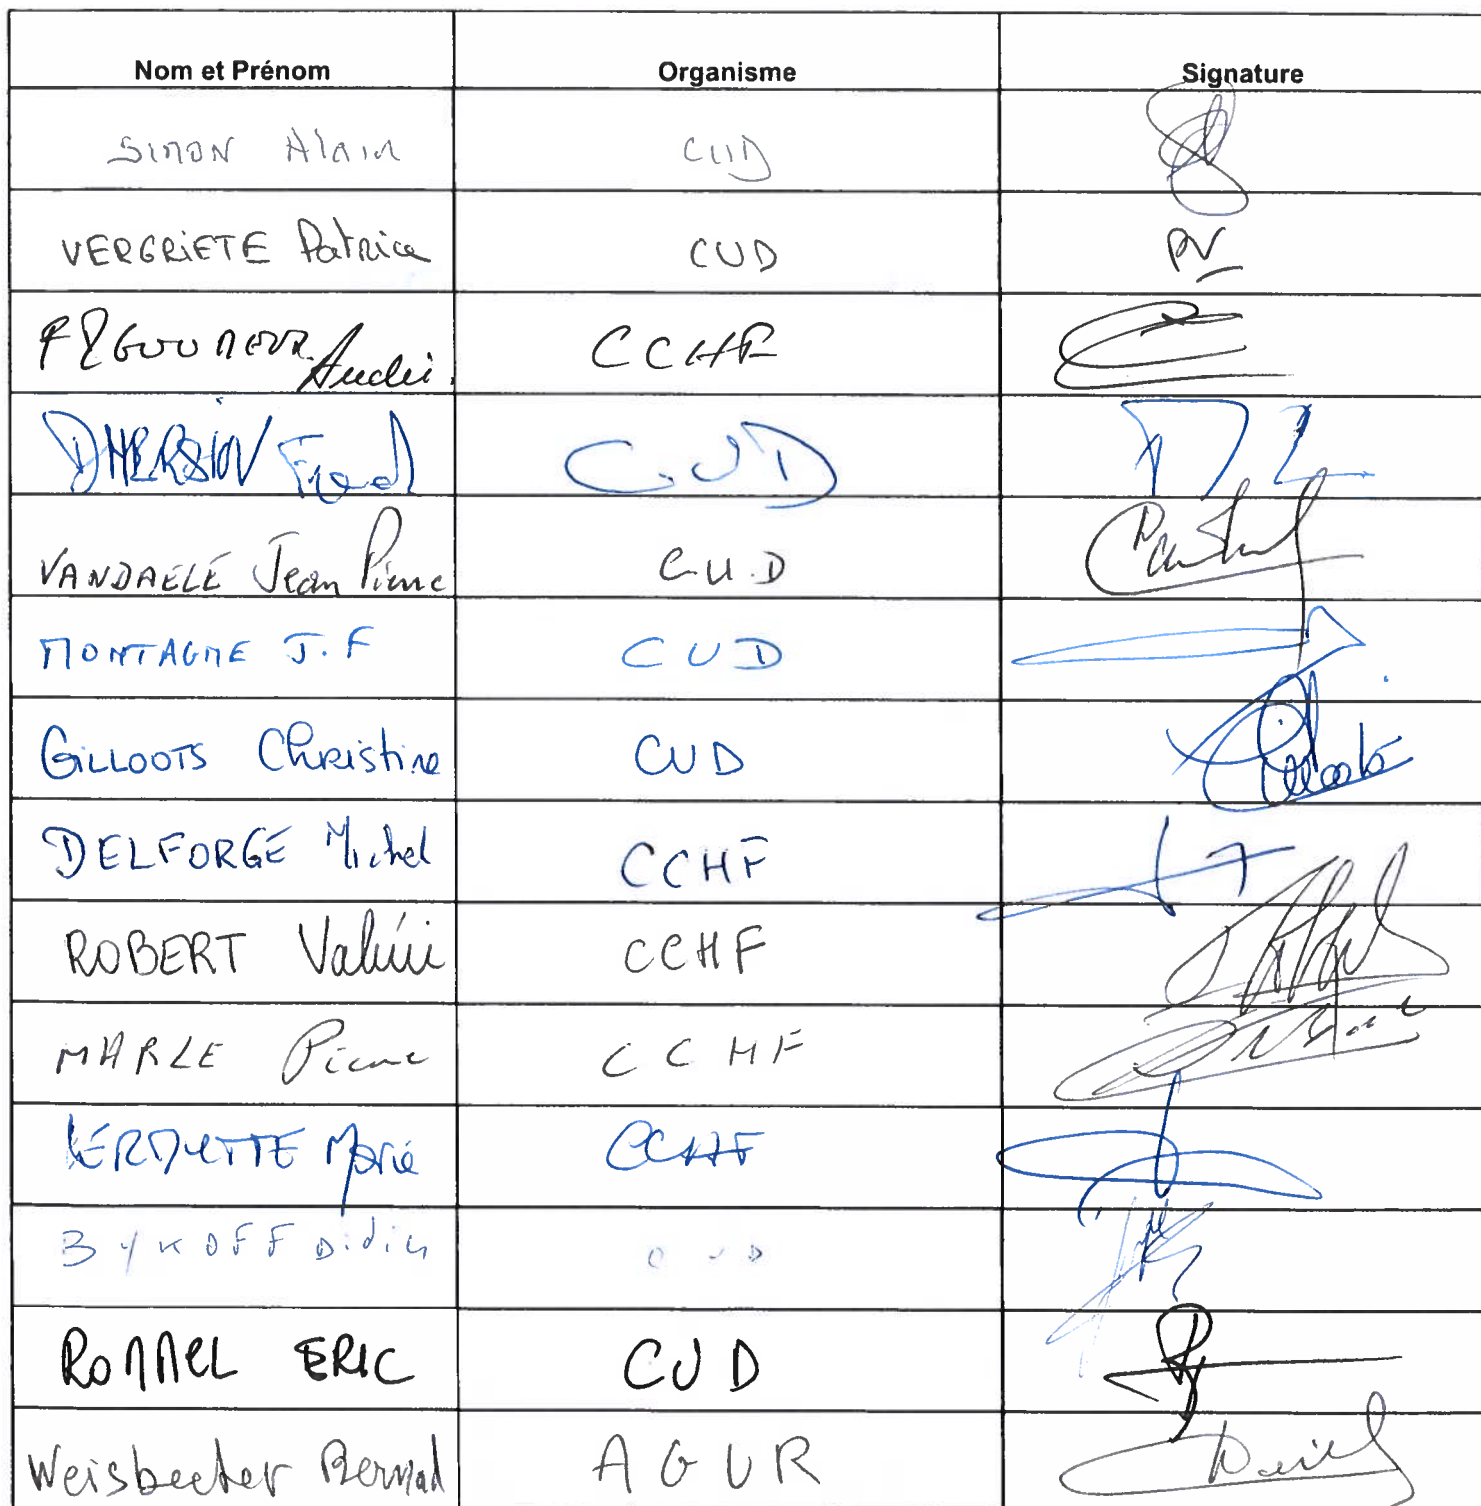 Nom et Prénom Organisme Signature
SIMON Alain CUD
VERGRIETE Patrice CUD PV
FIGOUREUX André CCHF
DHERSIN Fred C.UD
VANDAELE Jean Pierre C.U.D
MONTAGNE J.F CUD
GILLOOTS Christine CUD
DELFORGE Michel CCHF
ROBERT Valérie CCHF
MARLE Pierre CCHF
VERDUTTE Marie CCHF
BYKOFF Didier CUD
ROMMEL ERIC CUD
Weisbecker Bernard AGUR